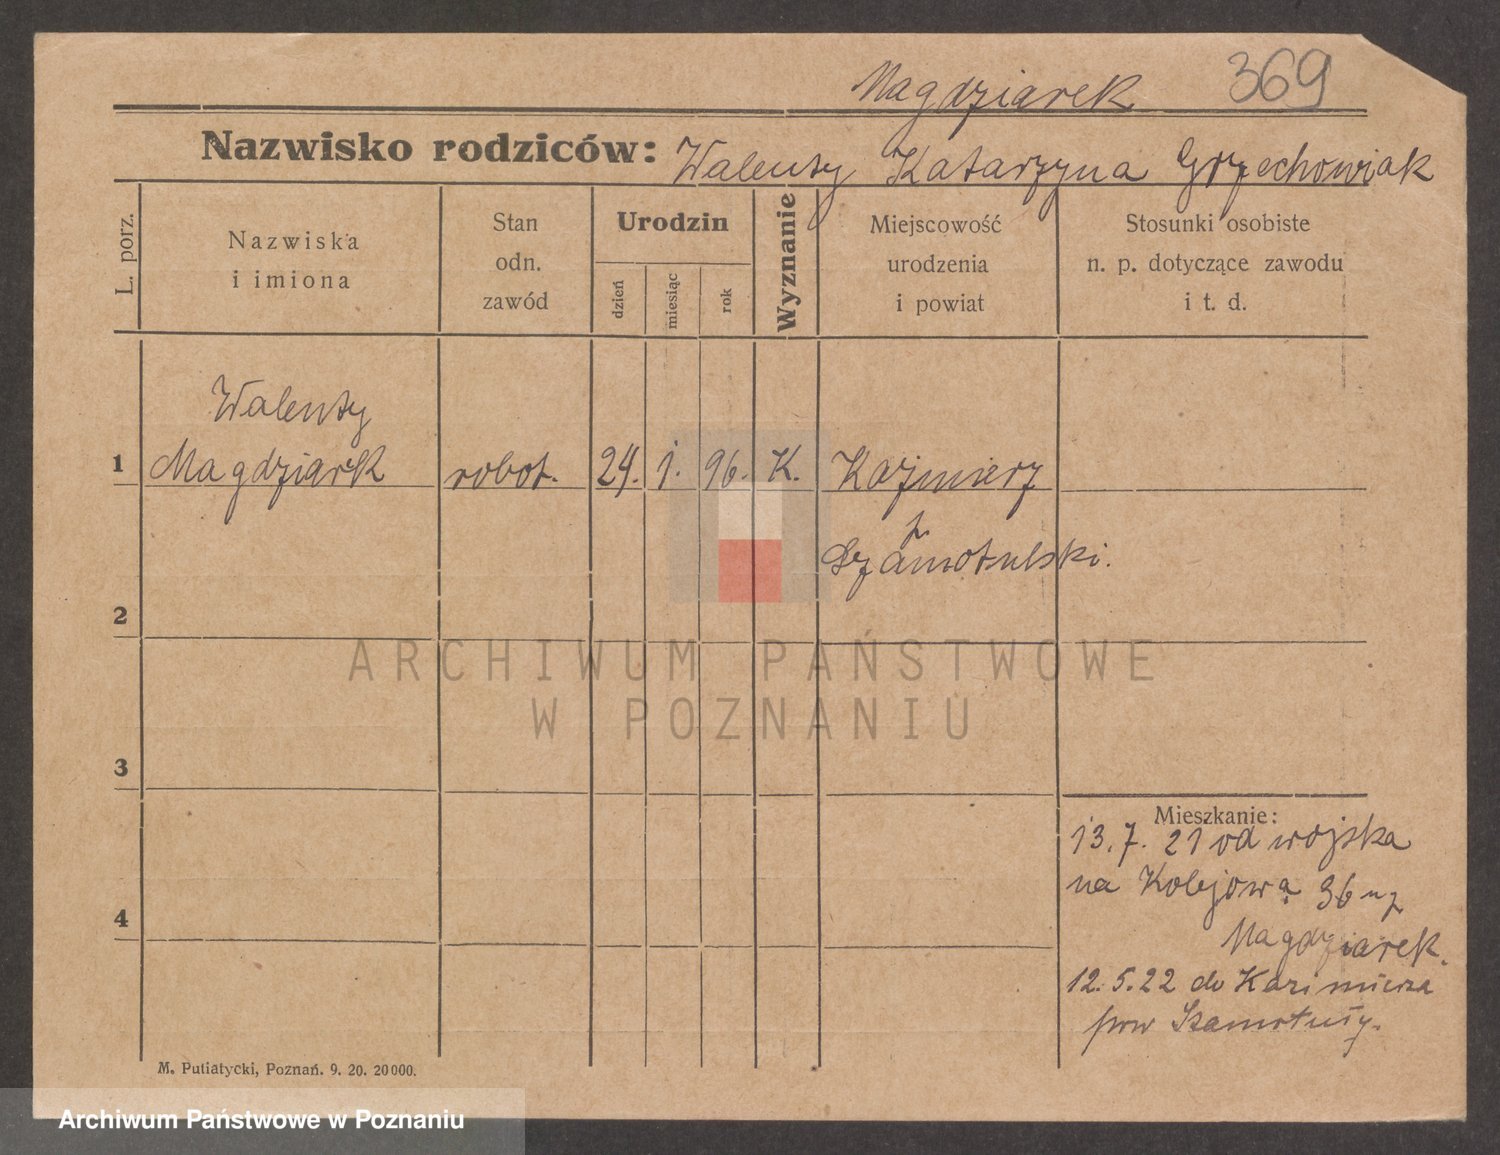 Magdziarek 369
Nazwisko rodziców: Walenty Katarzyna Grzechowiak
L. porz.
Nazwiska
i imiona
Stan
odn.
zawód
Urodzin
dzień
miesiąc
rok
Wyznanie
Miejscowość
urodzenia
i powiat
Stosunki osobiste
n. p. dotyczące zawodu
i t. d.
Walenty
1 Magdziarek robot. 24. 1. 96. K. Kaźmierz
p.
Szamotulski.
2
ARCHIWUM PAŃSTWOWE
W POZNANIU
3
Mieszkanie:
13. 7. 21 od wojska
na Kolejową 36
4
Magdziarek.
12. 5. 22 do Kazimierza
pow Szamotuły.
M. Putiatycki, Poznań. 9. 20. 20000.
Archiwum Państwowe w Poznaniu